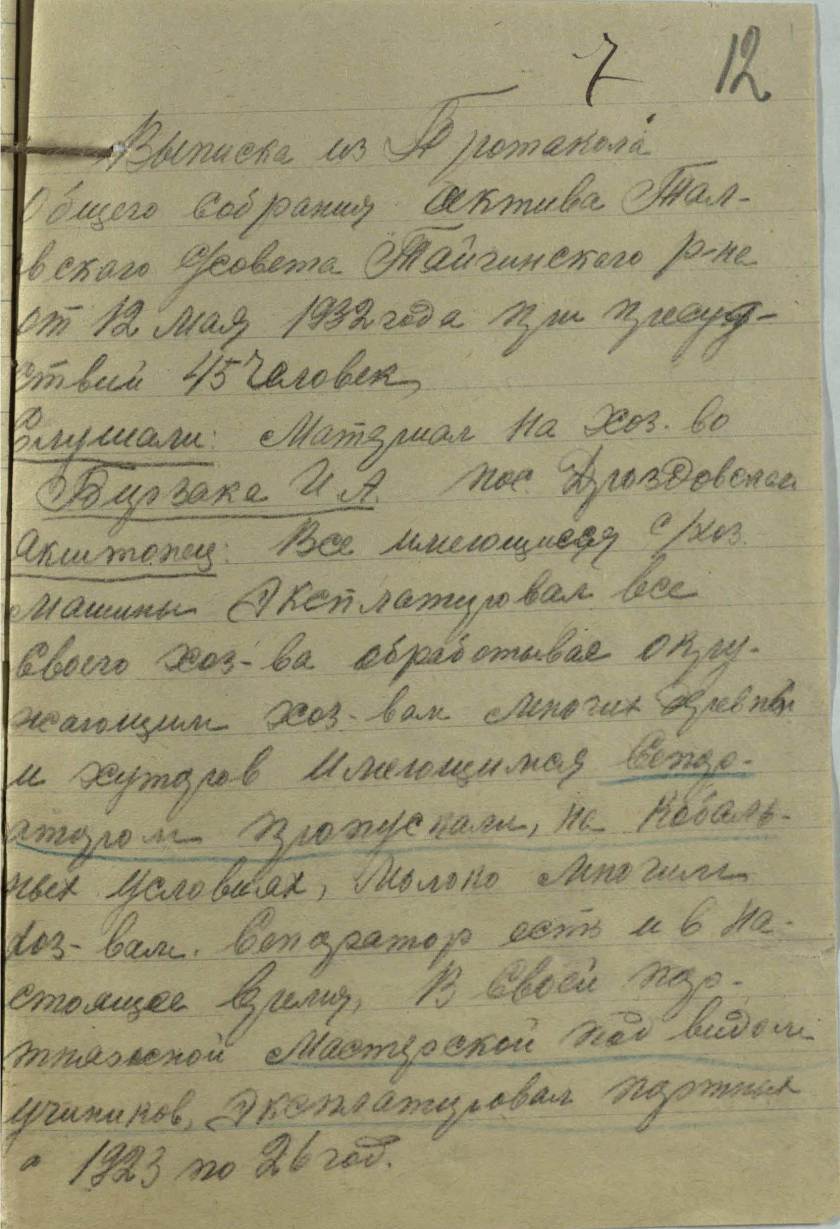 7 12
Выписка из Протакола
Общего собрания актива Тал-
овскаго С/совета Тайгинскаго р-на
от 12 мая 1932 года при пресуд-
ствии 45 человек,
Слушали: Материал на хоз-во
Бурзака И А. пос. Дроздовской
Все имеющиеся с/хоз.
машины Эксплатировал все
своего хоз-ва обрабатывая окру-
жающим хоз-вам многих деревень
и хуторов имеющимся Сепар-
атором пропускали, на кабаль-
ных условиях, молоко многим
хоз-вам. Сепаратор есть и в на-
стоящее время, В своей пор-
тняжной Мастерской под видом
учиников, Эксплатировал портных
с 1923 по 26 год.